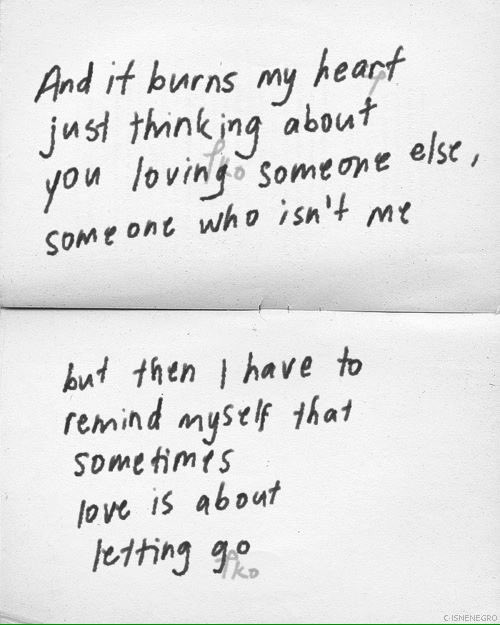 And it burns my heart
just thinking about
you loving someone else,
someone who isn't me
but then I have to
remind myself that
sometimes
love is about
letting go
C ISNENEGRO